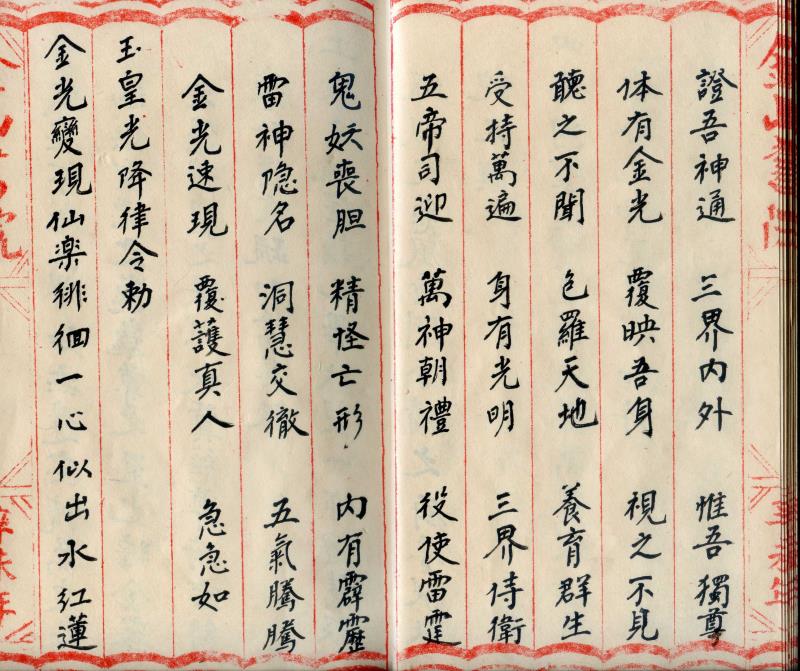 證吾神通 三界內外 惟吾獨尊
体有金光 覆映吾身 視之不見
聽之不聞 包羅天地 養育群生
受持萬遍 身有光明 三界侍衛
五帝司迎 萬神朝禮 役使雷霆
鬼妖喪胆 精怪亡形 內有霹靂
雷神隐名 洞慧交徹 五氣騰騰
金光速現 覆護真人 急急如
玉皇光降律令勅
金光變現仙楽徘徊一心似出水紅蓮